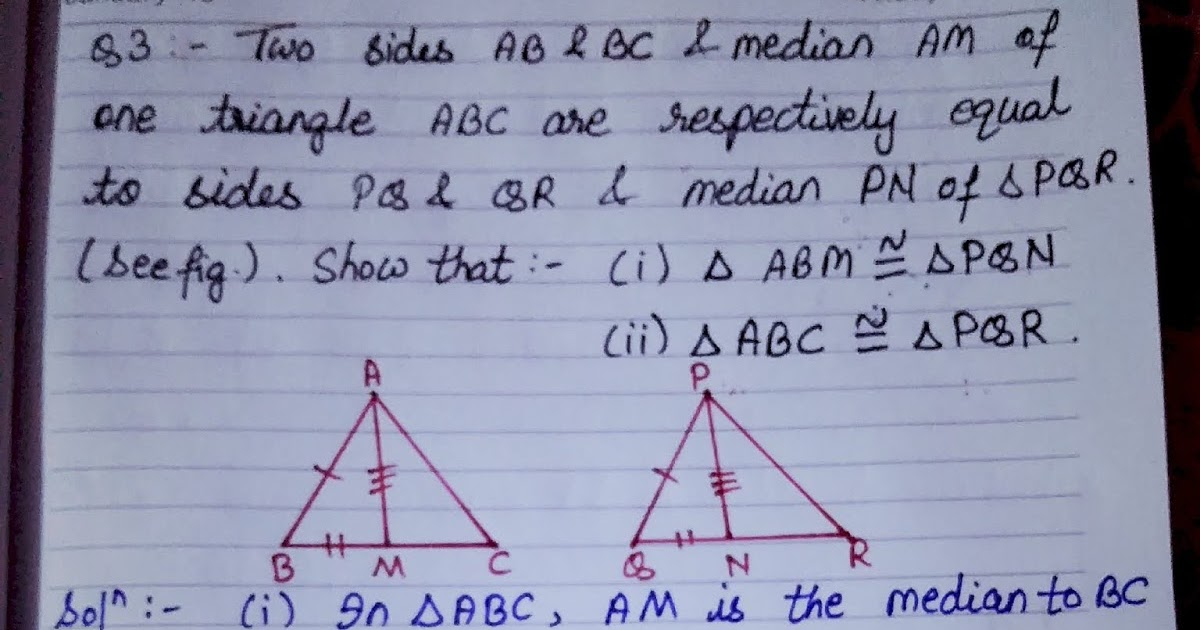 Q3 :- Two sides AB & BC & median AM of
one triangle ABC are respectively equal
to sides PQ & QR & median PN of Δ PQR.
(See fig.). Show that :- (i) Δ ABM ≅ Δ PQN
(ii) Δ ABC ≅ Δ PQR.
A P
B M C Q N R
Solⁿ :- (i) In Δ ABC, AM is the median to BC